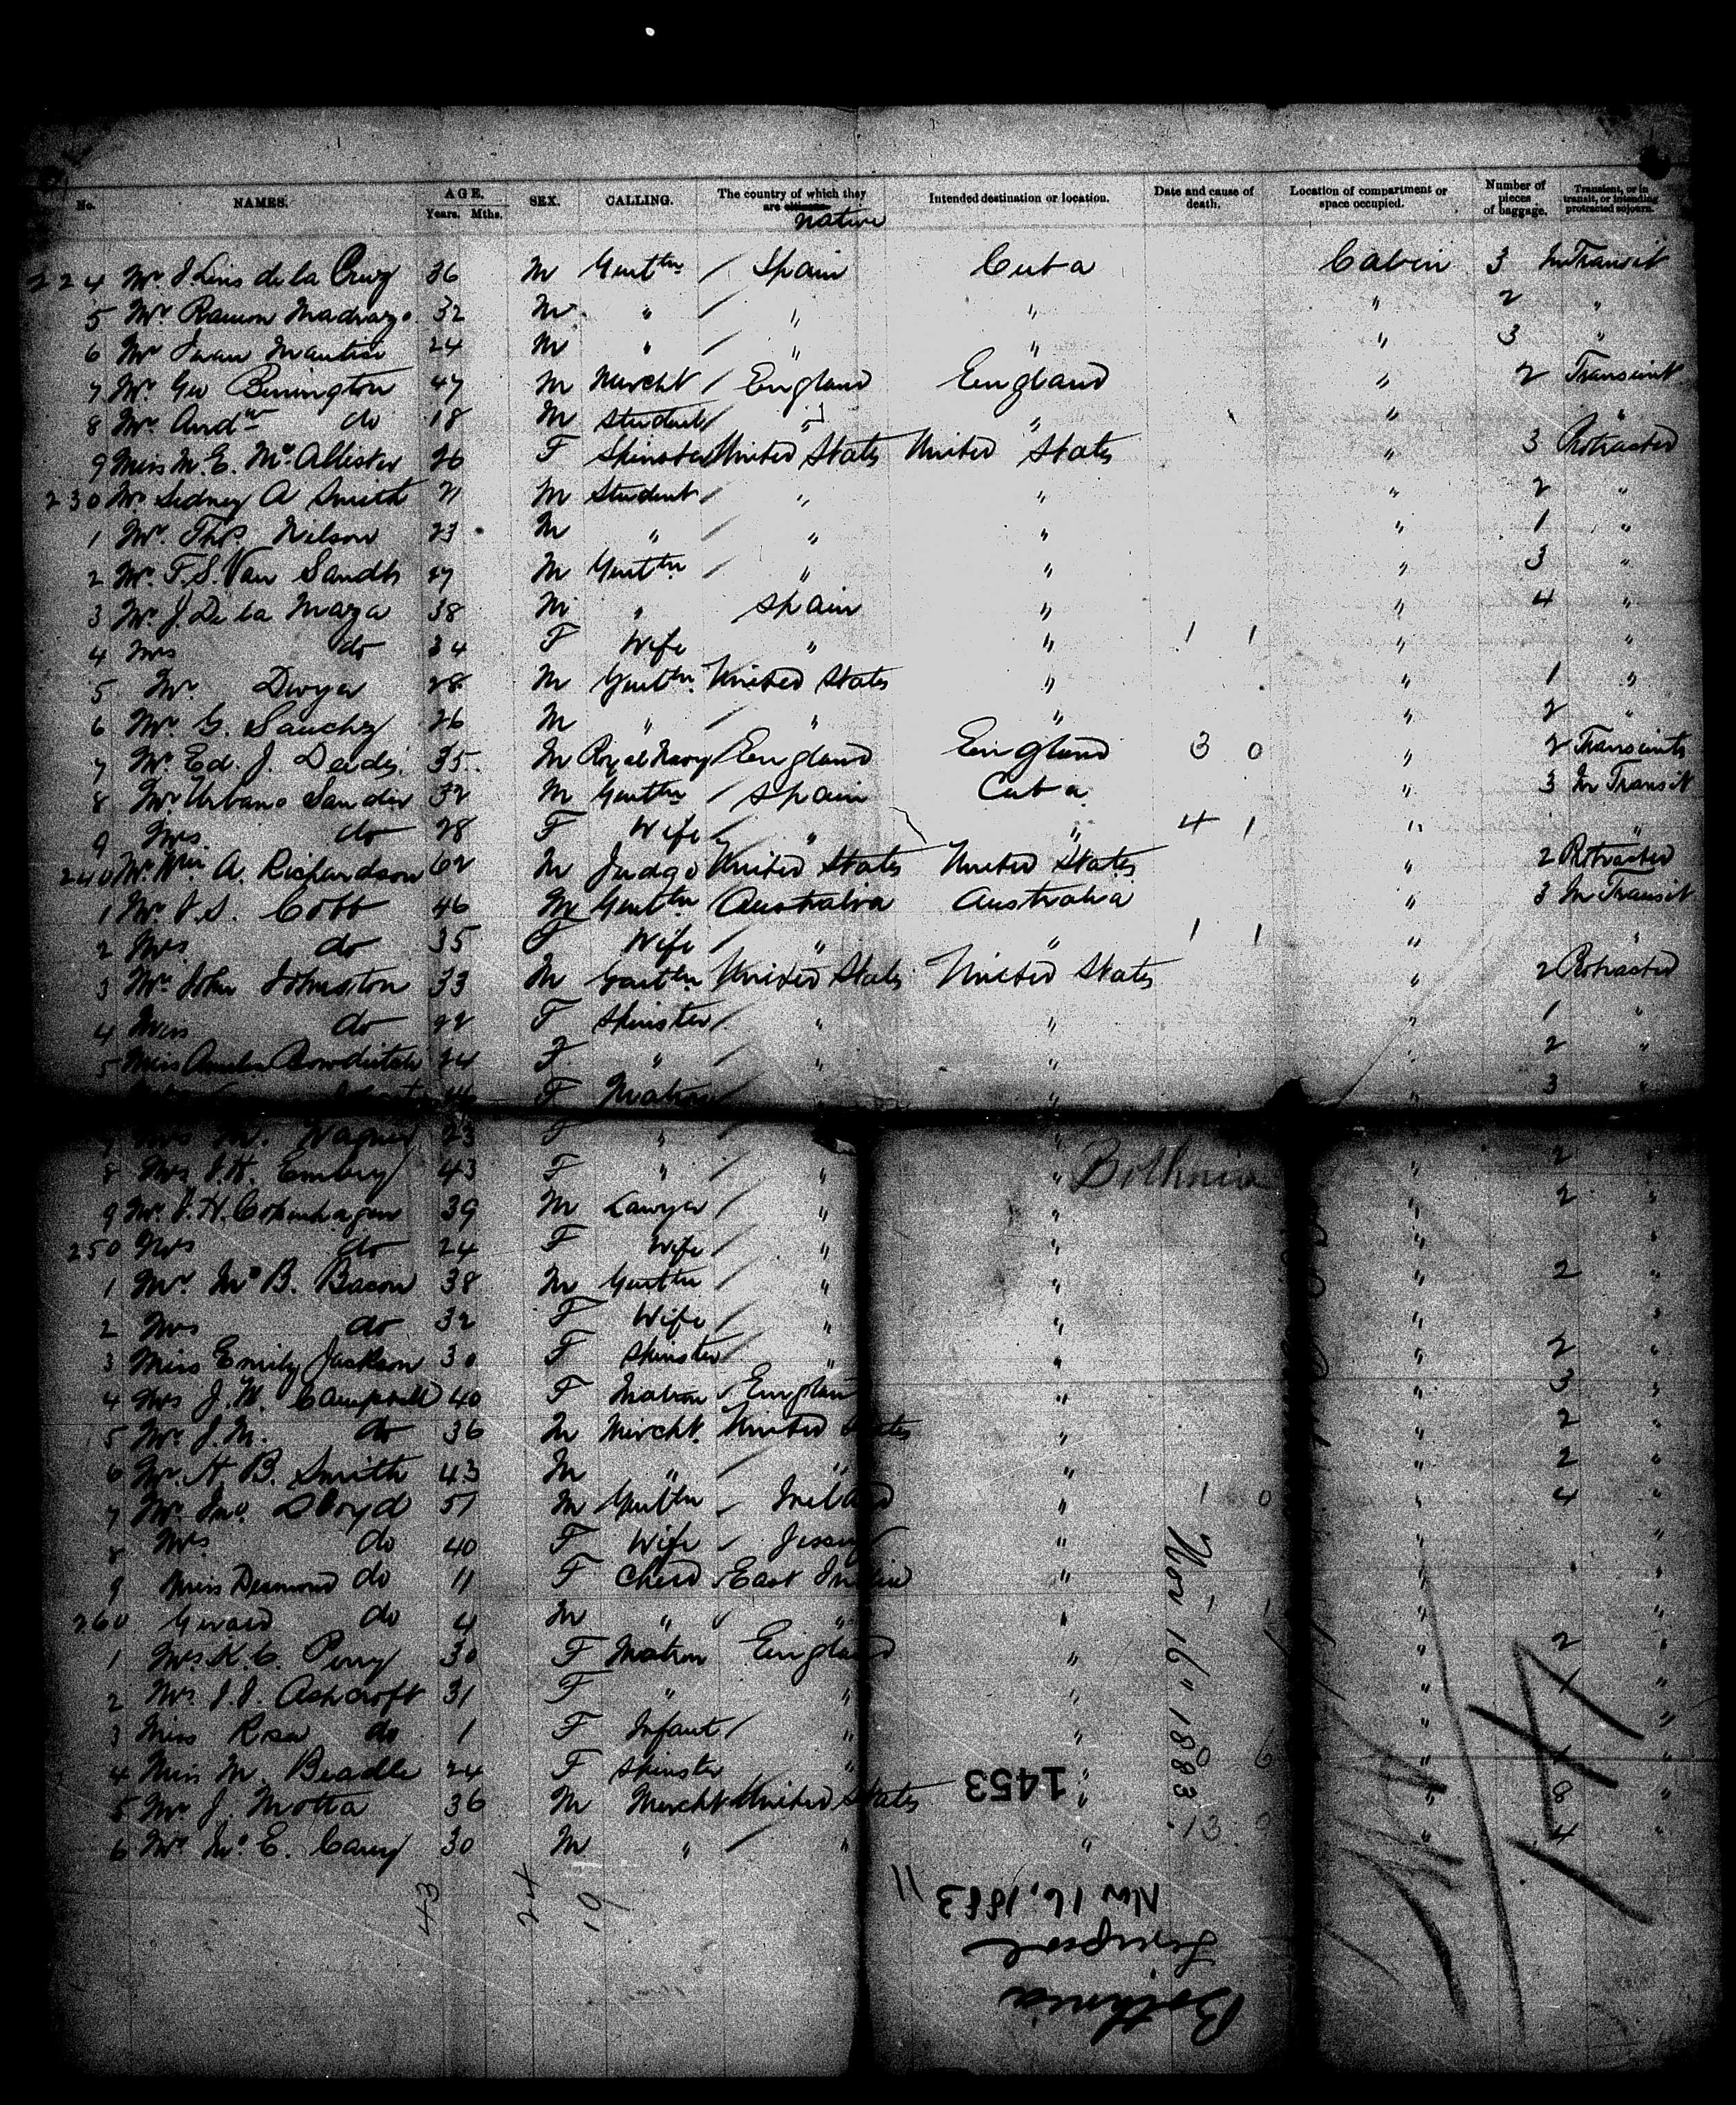 No. NAMES. AGE. Years. Mths. SEX. CALLING. The country of which they are citizens native Intended destination or location. Date and cause of death. Location of compartment or space occupied. Number of pieces of baggage. Transient, or in transit, or intending protracted sojourn.
224 Mr. J. Luis de la Cruz 36 M Gentln / Spain Cuba Cabin 3 In Transit
5 Mr Ramon Madrazo 32 M " / " " " 2 "
6 Mr Juan 24 M " / " " " 3 "
7 Mr. Geo Binington 47 M Mercht / England England " 2 Transient
8 Mr. Andw do 18 M Student / " " " "
9 Miss M. E. McAllister 26 F Spinster / United States United States " 3 Protracted
230 Mr Sidney A Smith 21 M Student / " " " 2 "
1 Mr. Thos. Wilson 23 M " / " " " 1 "
2 Mr. F. S. Van Sandts 47 M Gentln / " " " 3 "
3 Mr. J. De la Maza 38 M " Spain " " 4 "
4 Mrs do 34 F Wife " " 1 1 " "
5 Mr. Dwyer 28 M Gentln. United States " " 1 "
6 Mr. G. Sanchez 26 M " / " " " 2 "
7 Mr Ed. J. 35 M Royal Navy / England England 3 0 " 2 Transients
8 Mr Urbano 32 M Gentln / Spain Cuba " 3 In Transit
9 Mrs. do 28 F Wife / " " 4 1 " "
240 Mr. Wm A. Richardson 62 M Judge United States United States " 2 Protracted
1 Mr J. S. Cobb 46 M Gentln Australia Australia " 3 In Transit
2 Mrs. do 35 F Wife / " " 1 1 " "
3 Mr John Johnston 33 M Gentln United States United States " 2 Protracted
4 Miss do 22 F Spinster / " " " 1 "
5 Miss Amelia Bowditch 24 F " / " " " 2 "
46 F Matron / " " 3 "
7 Mrs M. Wagner 23 F " / " "
8 Mrs J. H. Embry 43 F " / " " " 2 "
Bothnia
9 Mr. J. H. Copenhagen 39 M Lawyer / " " " 2 "
250 Mrs do 24 F Wife / " " " "
1 Mr. B. Bacon 38 M Gentln / " " " 2 "
2 Mrs do 32 F Wife / " " " "
3 Miss Emily Jackson 30 F Spinster / " " " 2 "
4 Mrs J. M. Campbell 40 F Matron / England " " 3 "
5 Mr. J. M. do 36 M Mercht. United States " " 2 "
6 Mr. H. B. Smith 43 M " / " " " 2 "
7 Mr. Jno. Lloyd 51 M Gentln / Ireland " 1 0 " 4 "
8 Mrs. do 40 F Wife / Jersey " " "
9 Miss Desmond do 11 F Child / East India " " "
260 Gerard do 4 M " / " " 1 1 " "
1 Mrs. K. C. Perry 30 F Matron England " " 2 "
2 Mrs J. J. Ashcroft 31 F " " " " 1 "
3 Miss Rosa do 1 F Infant / " " " "
4 Miss M. Beadle 24 F Spinster " " 0 6 " "
5 Mr J. Motta 36 M Mercht United States " " 8 "
6 Mr Jno. E. Carey 30 M " / " " 13 9 " 4 "
Nov 16" 1883
43 24 19
1453
Nov 16, 1883
Liverpool
Bothnia